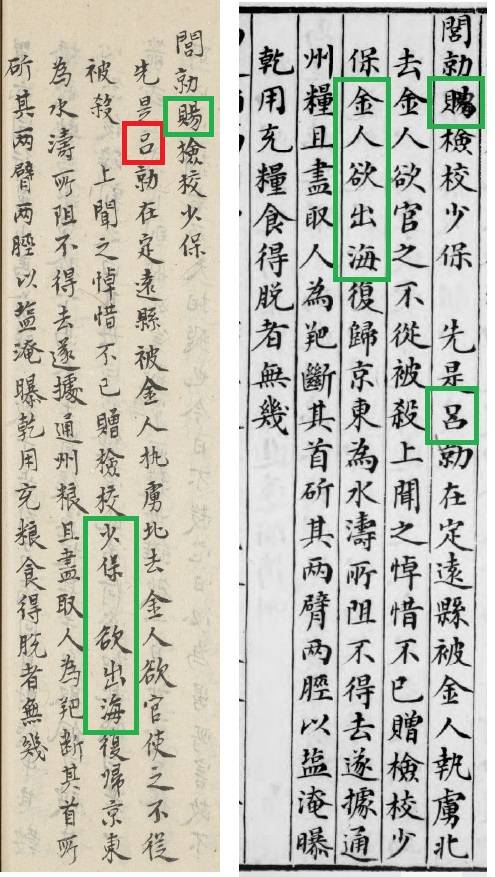 閭勍賜檢校少保
先是呂勍在定遠縣被金人執虜北去金人欲官使之不從
被殺 上聞之悼惜不已贈檢校少保 欲出海復歸京東
為水濤所阻不得去遂據通州粮且盡取人為羓断其首所
斫其两臂两脛以盐淹曝乾用充粮食得脱者無幾
閭勍賜檢校少保 先是呂勍在定遠縣被金人執虜北
去金人欲官之不從被殺上聞之悼惜不已贈檢校少
保金人欲出海復歸京東為水濤所阻不得去遂據通
州糧且盡取人為羓斷其首斫其两臂两脛以盐淹曝
乾用充糧食得脫者無幾